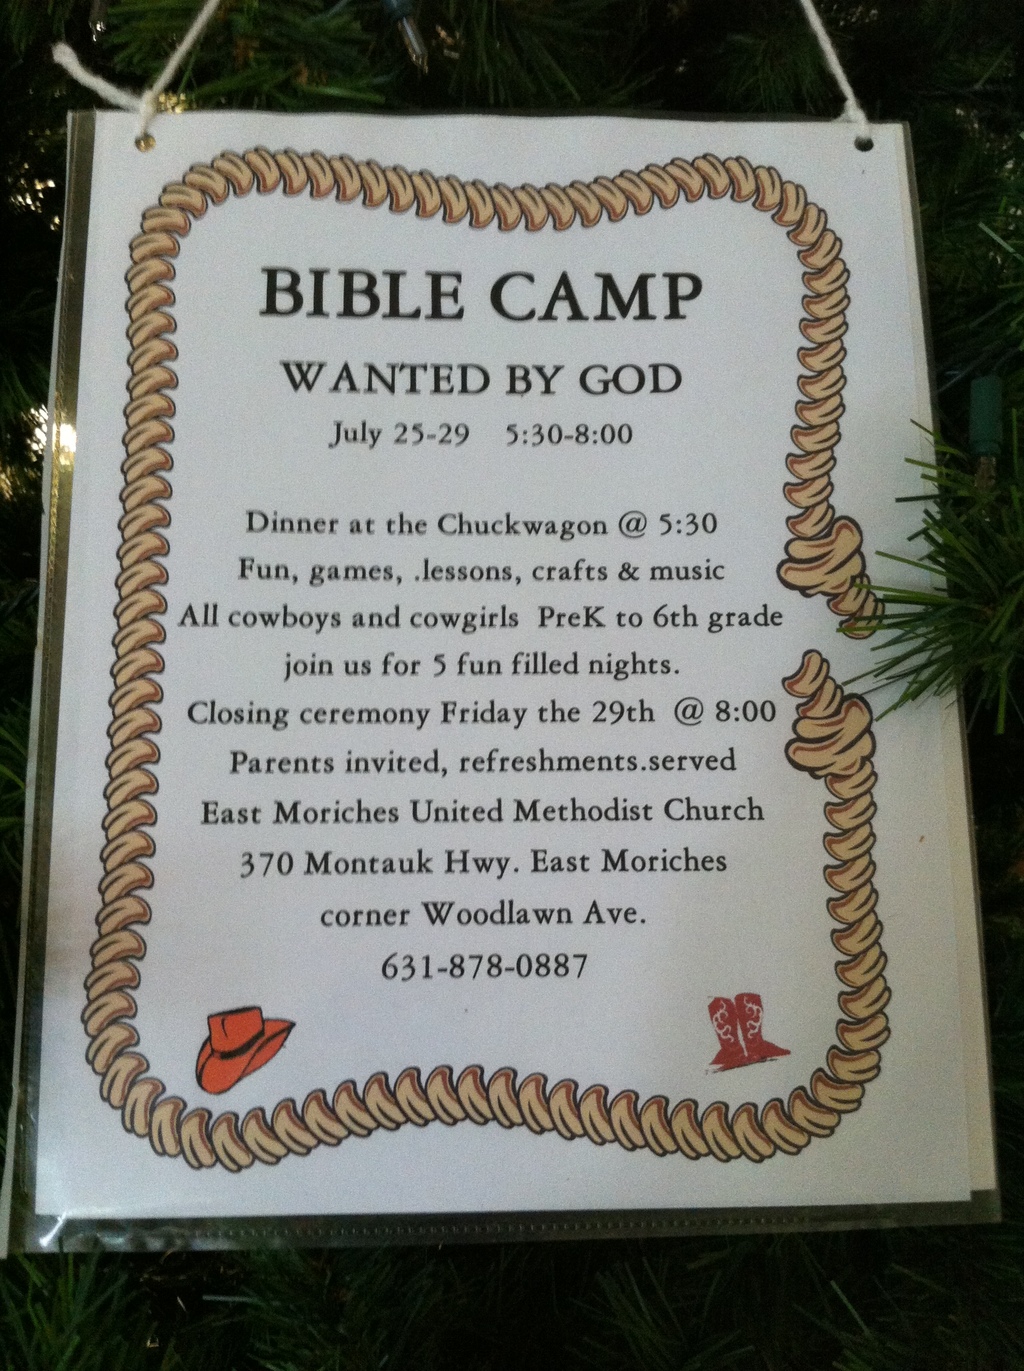 BIBLE CAMP
WANTED BY GOD
July 25-29 5:30-8:00
Dinner at the Chuckwagon @ 5:30
Fun, games, .lessons, crafts & music
All cowboys and cowgirls PreK to 6th grade
join us for 5 fun filled nights.
Closing ceremony Friday the 29th @ 8:00
Parents invited, refreshments.served
East Moriches United Methodist Church
370 Montauk Hwy. East Moriches
corner Woodlawn Ave.
631-878-0887